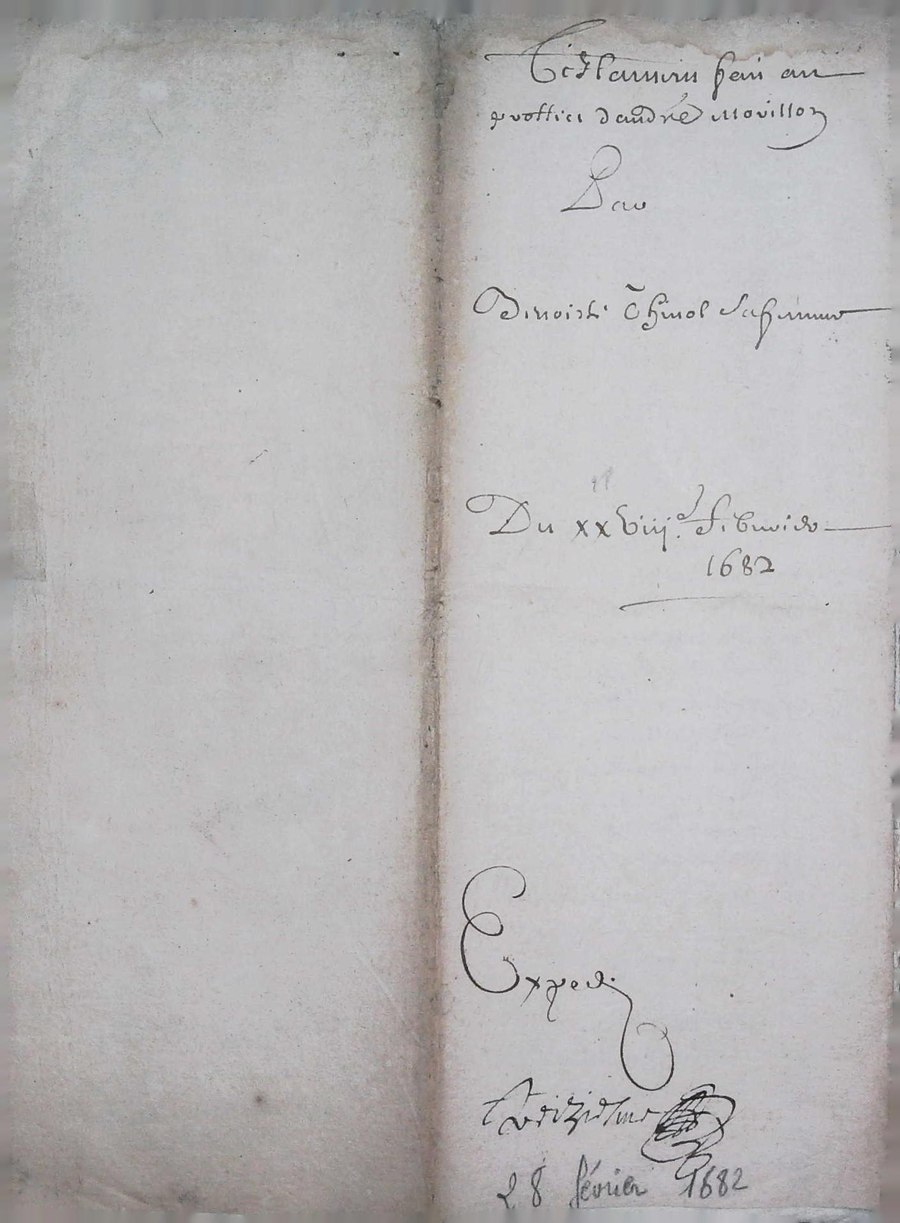 Testament fait au
proffict d'andré Movillon
Par
Benoiste Thinol sa femme
Du xxviij.e febvrier
1682
Exped.
28 février 1682